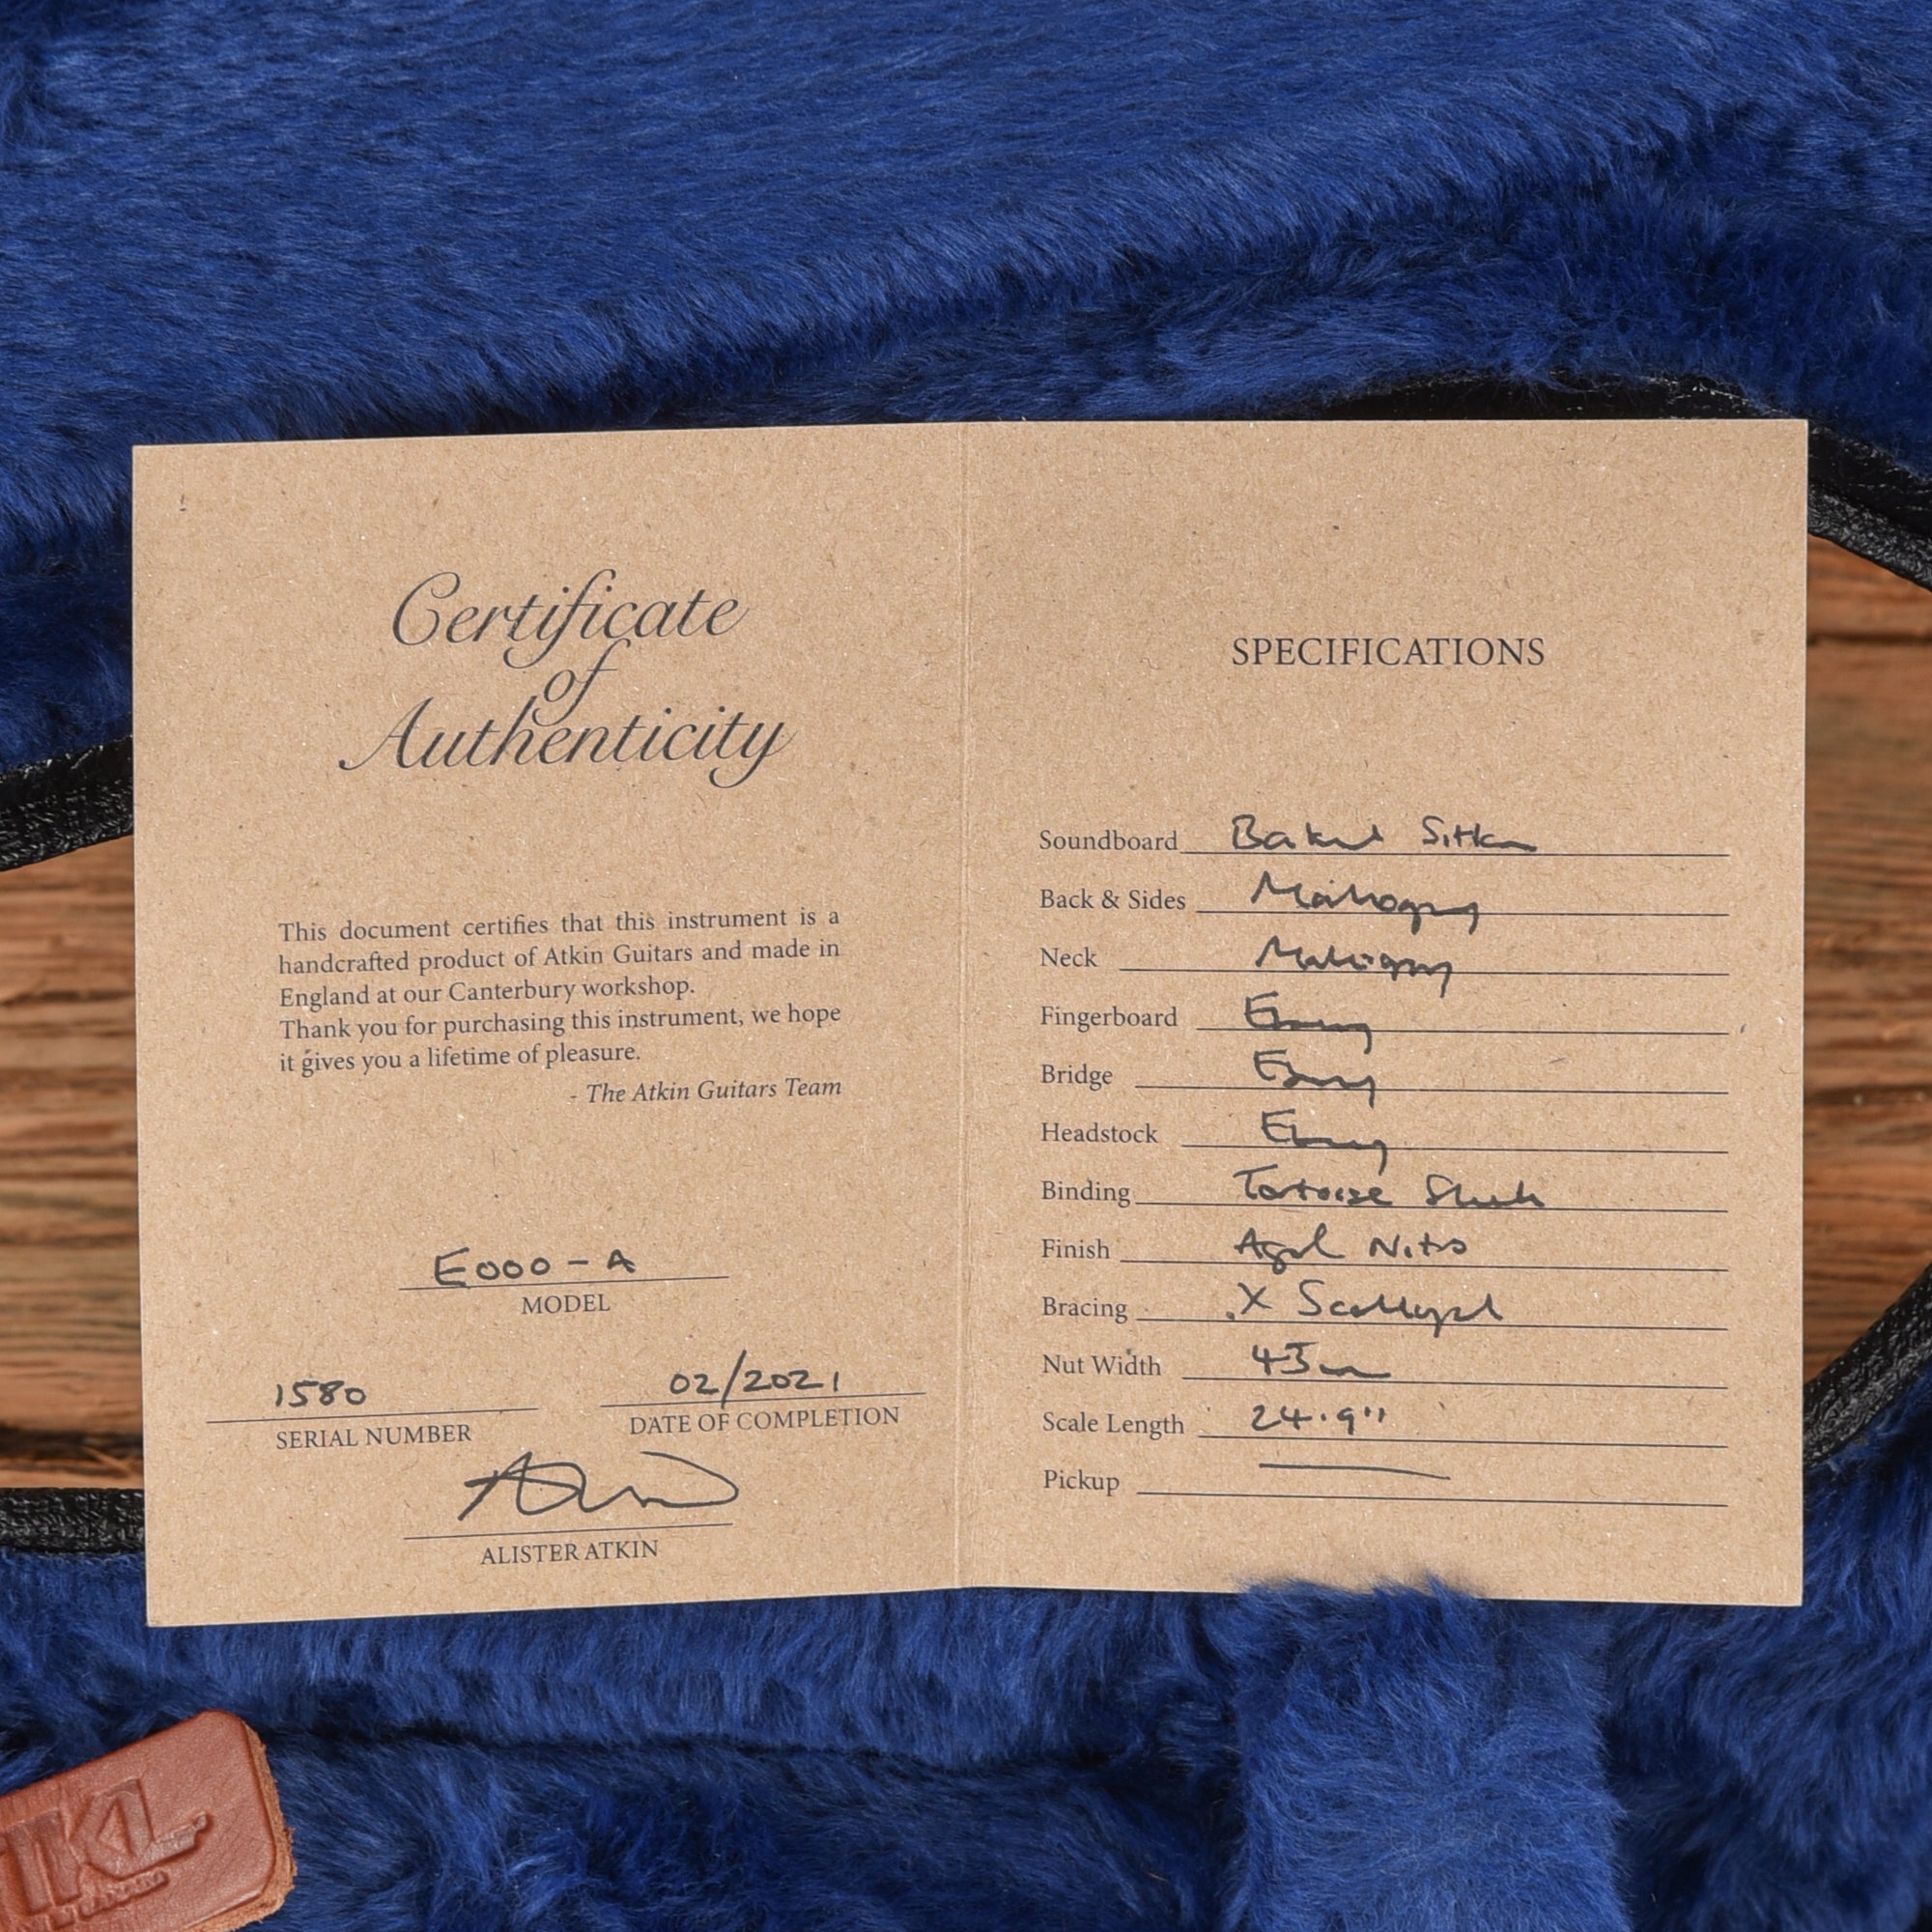 Certificate
of
Authenticity
This document certifies that this instrument is a
handcrafted product of Atkin Guitars and made in
England at our Canterbury workshop.
Thank you for purchasing this instrument, we hope
it gives you a lifetime of pleasure.
- The Atkin Guitars Team
E000-A
MODEL
1580
SERIAL NUMBER
02/2021
DATE OF COMPLETION
ALISTER ATKIN
SPECIFICATIONS
Soundboard Baked Sitka
Back & Sides Mahogany
Neck Mahogany
Fingerboard Ebony
Bridge Ebony
Headstock Ebony
Binding Tortoise Shell
Finish Aged Nitro
Bracing X Scalloped
Nut Width
Scale Length 24.9"
Pickup